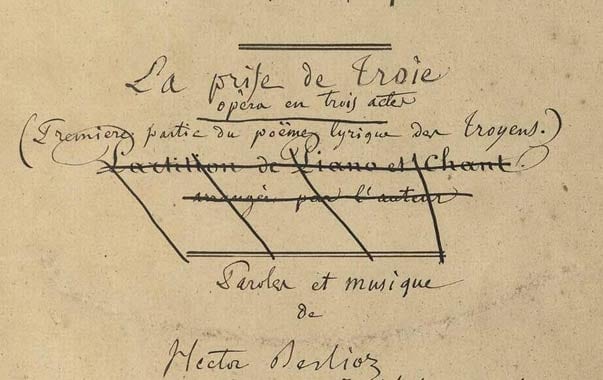 La prise de Troie
opéra en trois actes
(Premiere partie du poëme lyrique des Troyens.)
Partition de Piano et Chant
arrangée par l'auteur
Paroles et musique
de
Hector Berlioz